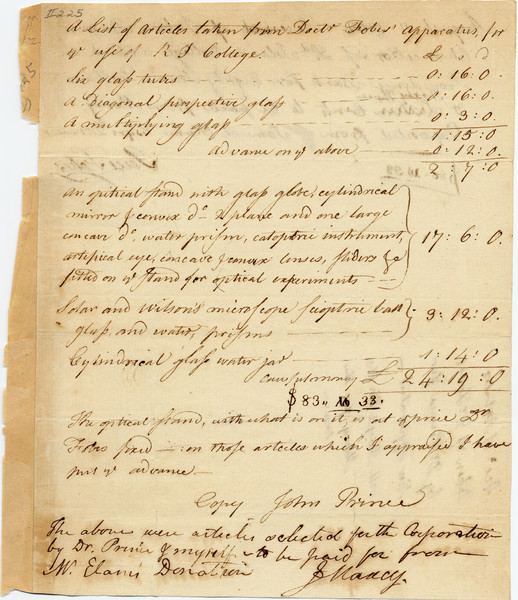 II 225
A List of Articles taken from Doctr. Fobes' Apparatus, for
ye use of R I College. £ s d
Six glass tubes 0: 16: 0.
A diagonal perspective glass 0: 16: 0.
A multiplying glass 0: 3: 0.
1: 15: 0
Advance on ye above 0: 12: 0.
2: 7: 0
An optical stand with glass globe, cylindrical
mirror & convex do. 2 plane and one large
concave do. water prism, catoptric instrument,
artificial eye, concave & convex lenses, sliders &c
fitted on ye stand for optical experiments 17: 6: 0.
Solar and Wilson's microscope scioptric ball
glass, and water, prisms 3: 12: 0.
Cylindrical glass water jar 1: 14: 0
Lawful money £ 24: 19: 0
$83.. 33.
The optical stand, with what is on it, is at ye price Dr
Fobes fixed — on those articles which I appraised I have
put ye advance —
Copy John Prince
The above were articles selected for the Corporation
by Dr. Prince & myself to be paid for from
Mr. Elam's Donation J Maxcy.